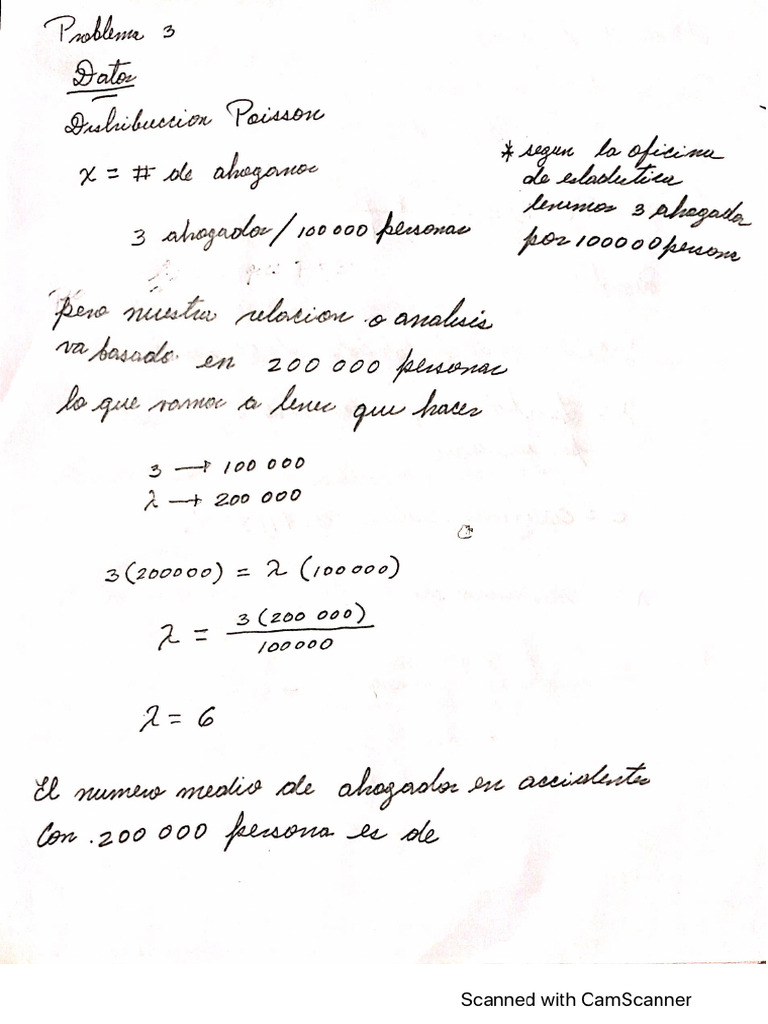 Problema 3
Datos
Distribuccion Poisson
x = # de ahoganos
3 ahogados/100 000 personas
* segun la oficina
de estadistica
tenemos 3 ahogados
por 100000 persona
pero nuestra relacion o analisis
va basado en 200 000 personas
lo que vamos a tener que hacer
3 → 100 000
λ → 200 000
3(200000) = λ (100000)
λ = 3(200 000) / 100000
λ = 6
El numero medio de ahogados en accidentes
Con .200 000 persona es de
Scanned with CamScanner